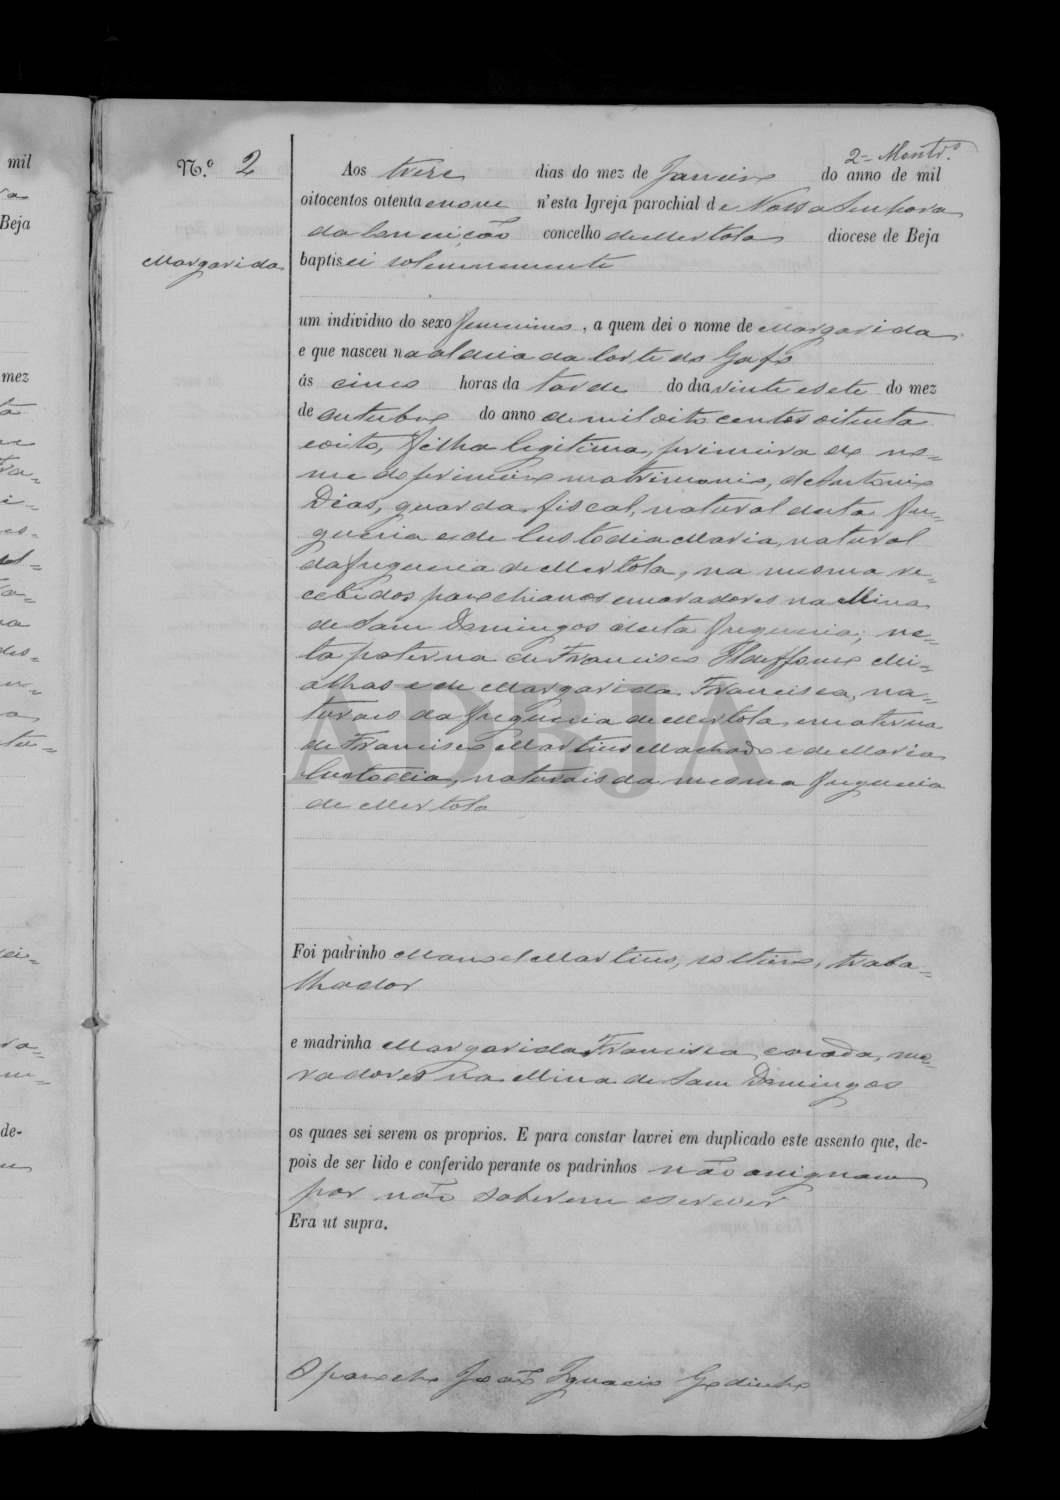 mil
Beja
mez
de-
2= Montr.º
N.º 2
Aos treze dias do mez de Janeiro do anno de mil
oitocentos oitenta e nove n'esta Igreja parochial de Nossa Senhora
da Conceição concelho de Mertola diocese de Beja
Margarida
baptisei solemnemente
um individuo do sexo feminino, a quem dei o nome de Margarida
e que nasceu na aldeia da Corte do Gafo
ás cinco horas da tarde do dia vinte e sete do mez
de outubro do anno de mil oito centos oitenta
e oito, filha legitima, primeira do no=
me do primeiro matrimonio, de Antonio
Dias, guarda fiscal, natural desta fre=
guesia e de Custodia Maria, natural
da freguesia de Mertola, na mesma re=
cebidos parochianos e moradores na Mina
de Sam Domingos desta freguesia; ne=
ta paterna de Francisco Ildeffonso Mi=
alhas e de Margarida Francisca, na=
turaes da freguesia de Mertola, e materna
de Francisco Martins Machado e de Maria
Custodia, naturais da mesma freguesia
de Mertola
ADBJA
Foi padrinho Manoel Martins, solteiro, traba=
lhador
e madrinha Margarida Francisca, casada, mo=
radores na Mina de Sam Domingos
os quaes sei serem os proprios. E para constar lavrei em duplicado este assento que, de-
pois de ser lido e conferido perante os padrinhos não assignam
por não saberem escrever
Era ut supra.
O parocho João Ignacio Godinho